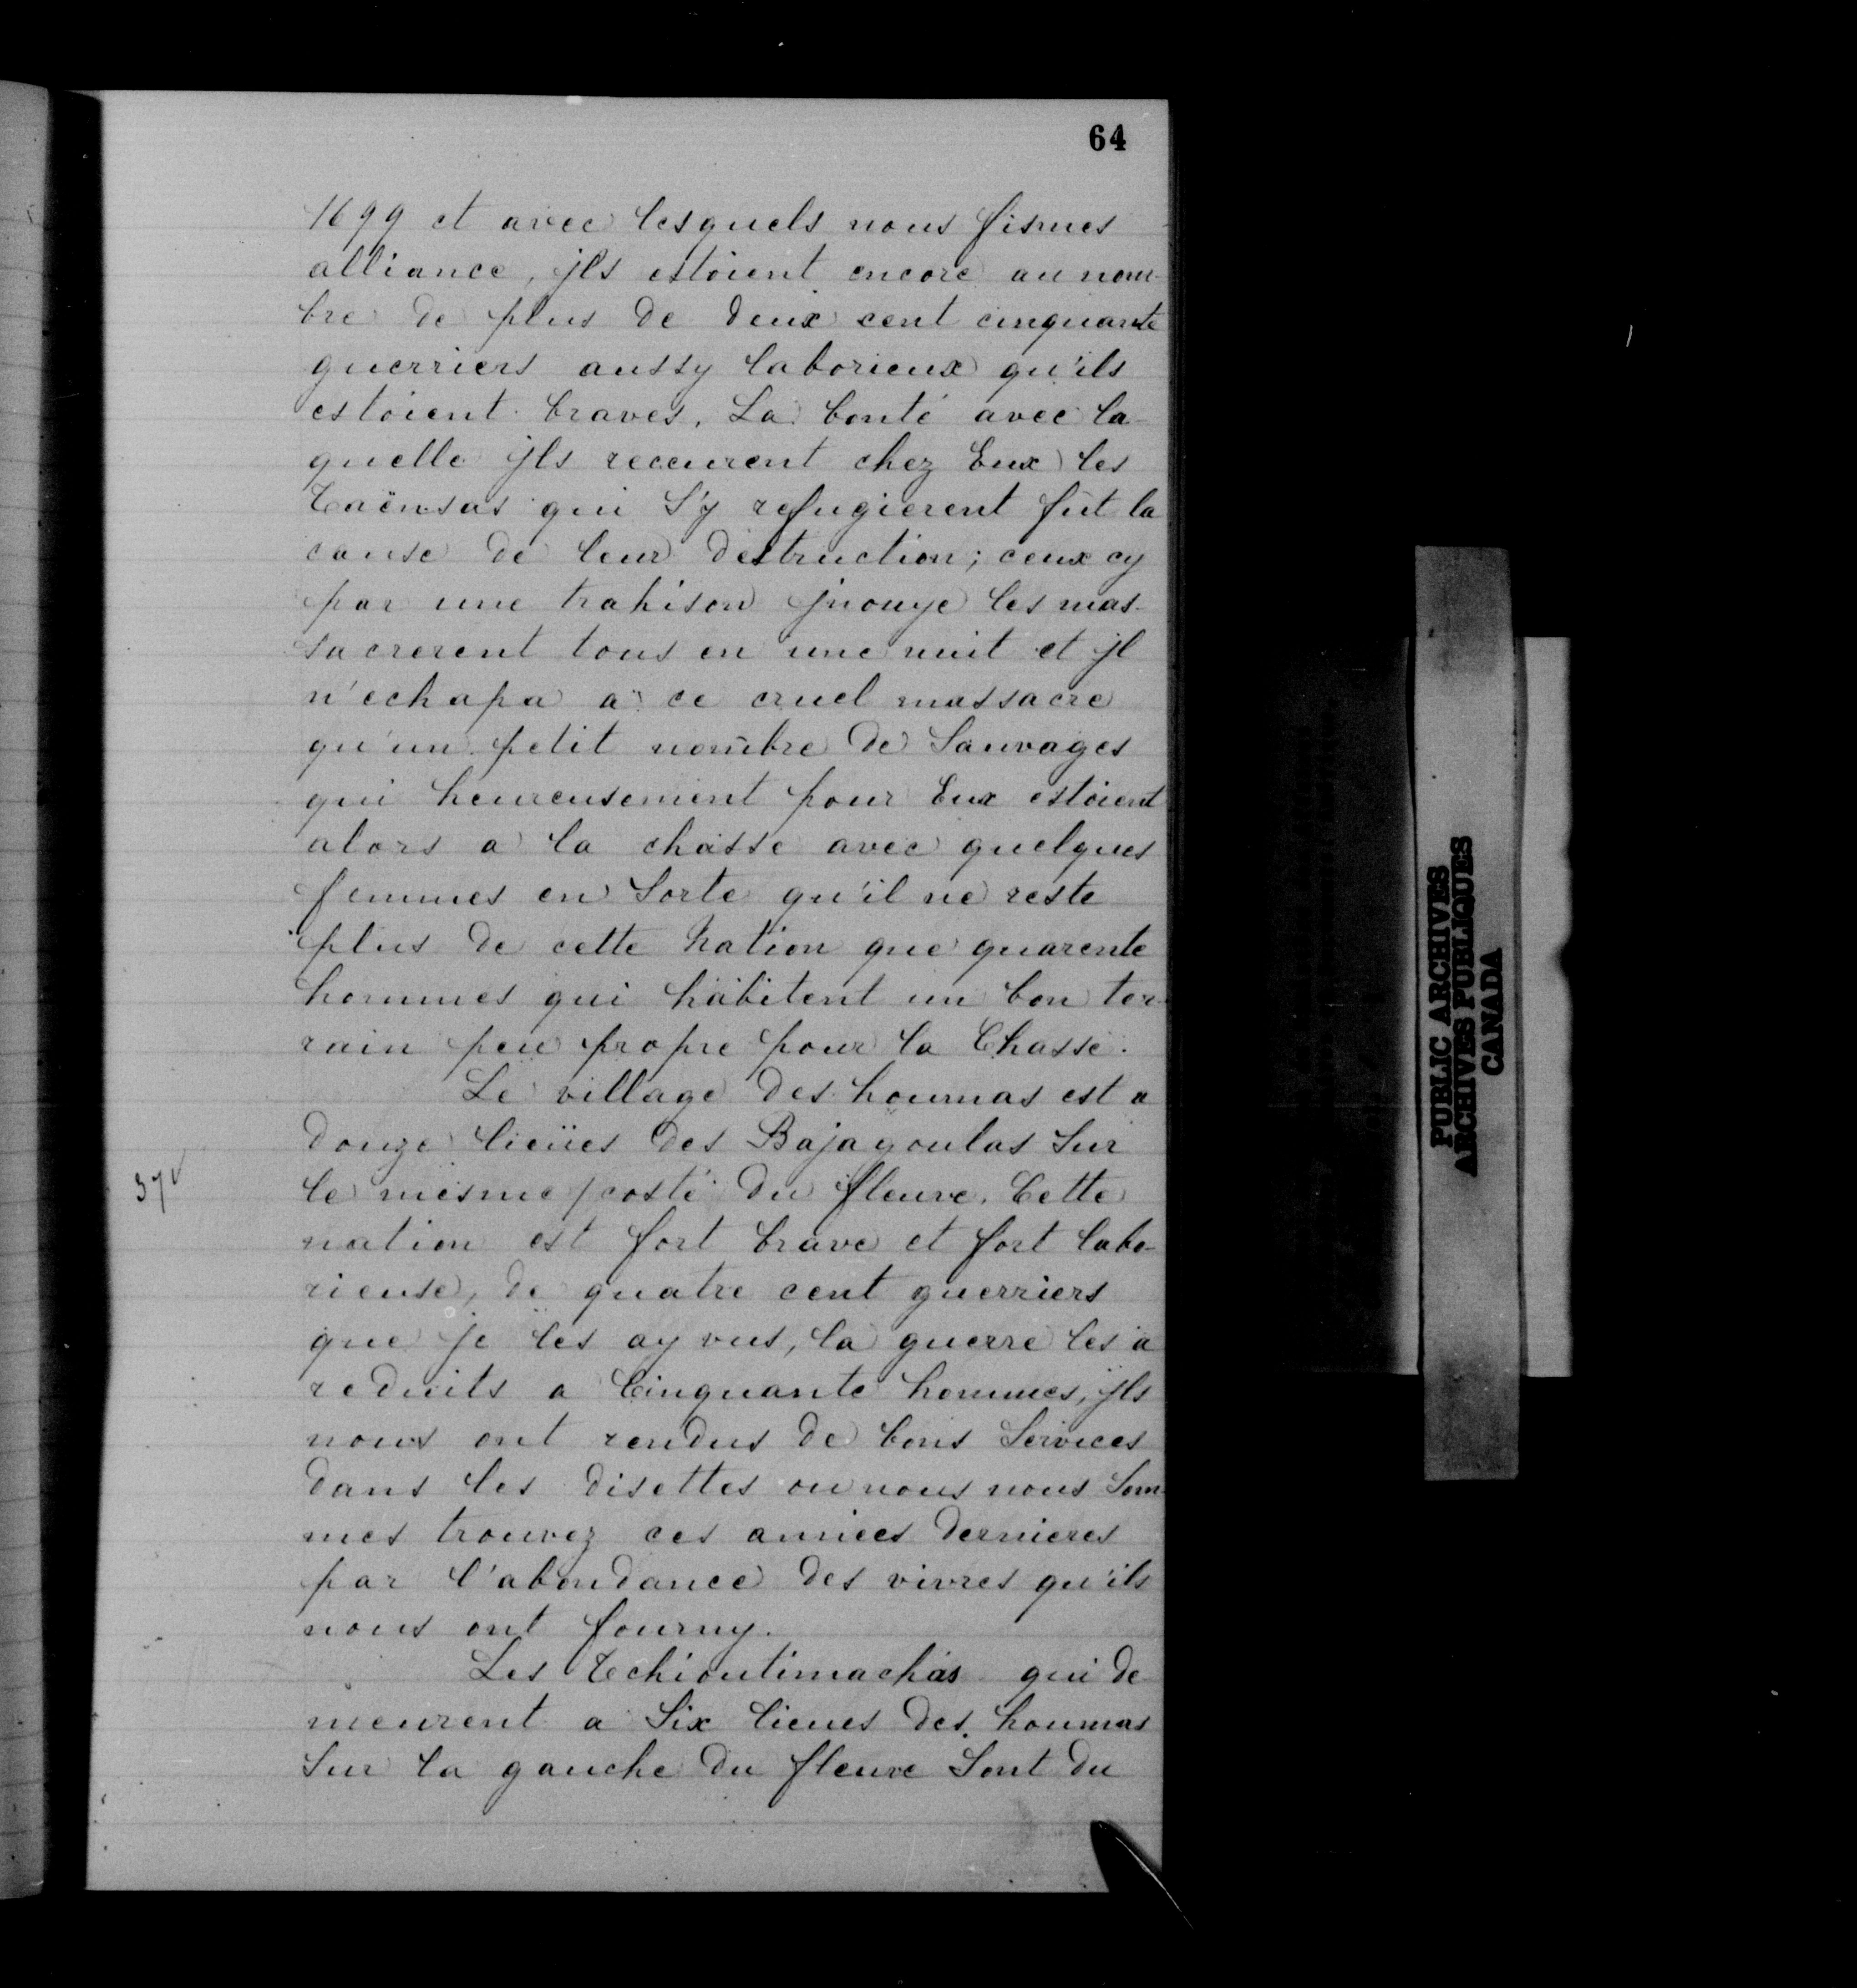 64
1699 et avec lesquels nous fismes
alliance, jls estoient encore au nom-
bre de plus de deux cent cinquante
guerriers aussy laborieux qu'ils
estoient braves. La bonté avec la-
quelle jls receurent chez Eux les
Taënsas qui s'y refugierent fut la
cause de leur destruction; ceux cy
par une trahison jnouye les mas-
sacrerent tous en une nuit et jl
n'echapa a ce cruel massacre
qu'un petit nombre de Sauvages
qui heureusement pour Eux estoient
alors a la chasse avec quelques
femmes en Sorte qu'il ne reste
plus de cette Nation que quarente
hommes qui habitent un bon ter-
rain peu propre pour la Chasse.
Le village des houmas est a
douze lieües des Bajagoulas Sur
le mesme costé du fleuve. Cette
nation est fort brave et fort labo-
rieuse, de quatre cent guerriers
que je les ay vus, la guerre les a
reduits a Cinquante hommes, jls
nous ont rendus de bons Services
dans les disettes ou nous nous Som-
mes trouvez ces années dernieres
par l'abondance des vivres qu'ils
nous ont fourny.
Les Tchioutimachas qui de
meurent a Six lieues des houmas
Sur la gauche du fleuve Sont du
37v
PUBLIC ARCHIVES
ARCHIVES PUBLIQUES
CANADA